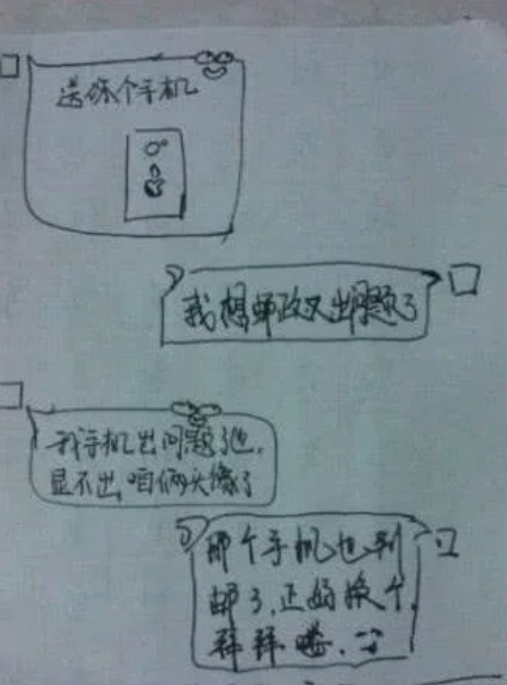 送你个手机
我想邮政又出问题了
我手机出问题了也,
显不出咱俩头像了
那个手机也到
邮了,正好换个,
拜拜喽.